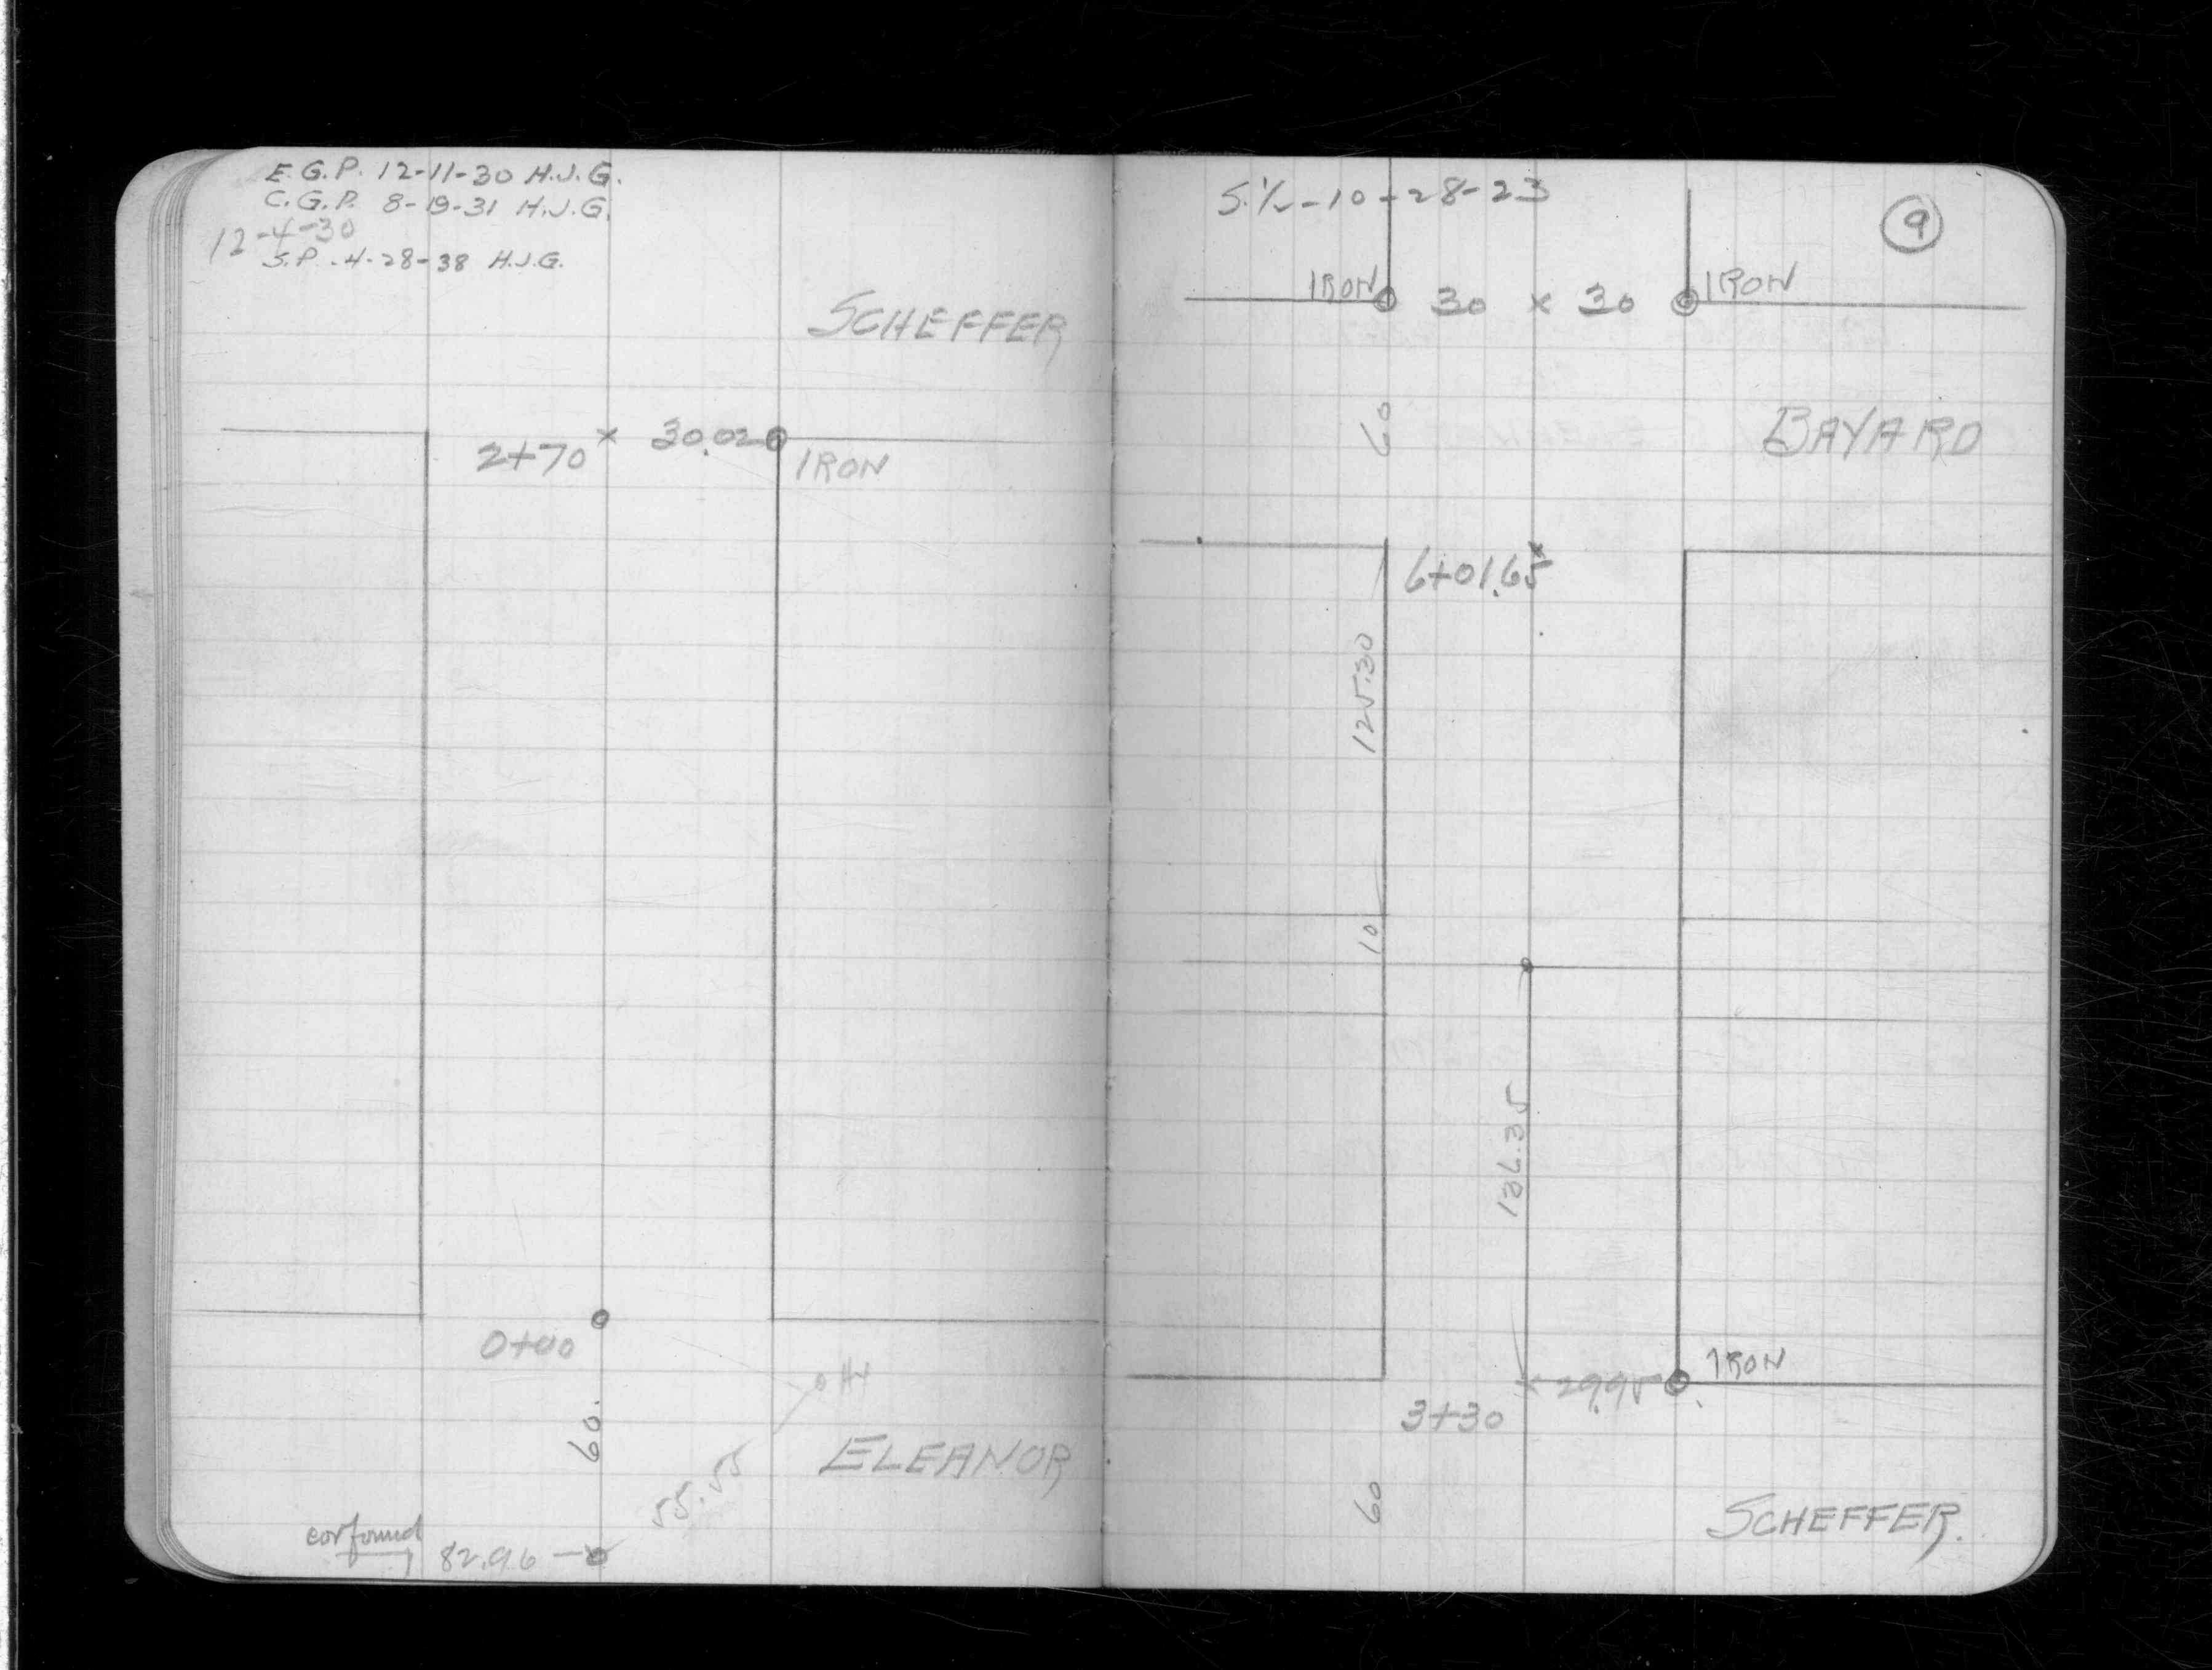 E.G.P. 12-11-30 H.J.G.
C.G.P. 8-19-31 H.J.G.
12-4-30
S.P. 4-28-38 H.J.G.
SCHEFFER
2+70 × 30.02
IRON
0+00
60.
ELEANOR
55.55
cor found
82.96
S.½-10-28-23
9
IRON 30 × 30 IRON
60
BAYARD
6+01.65
125.30
10
136.35
IRON
29.95
3+30
60
SCHEFFER.